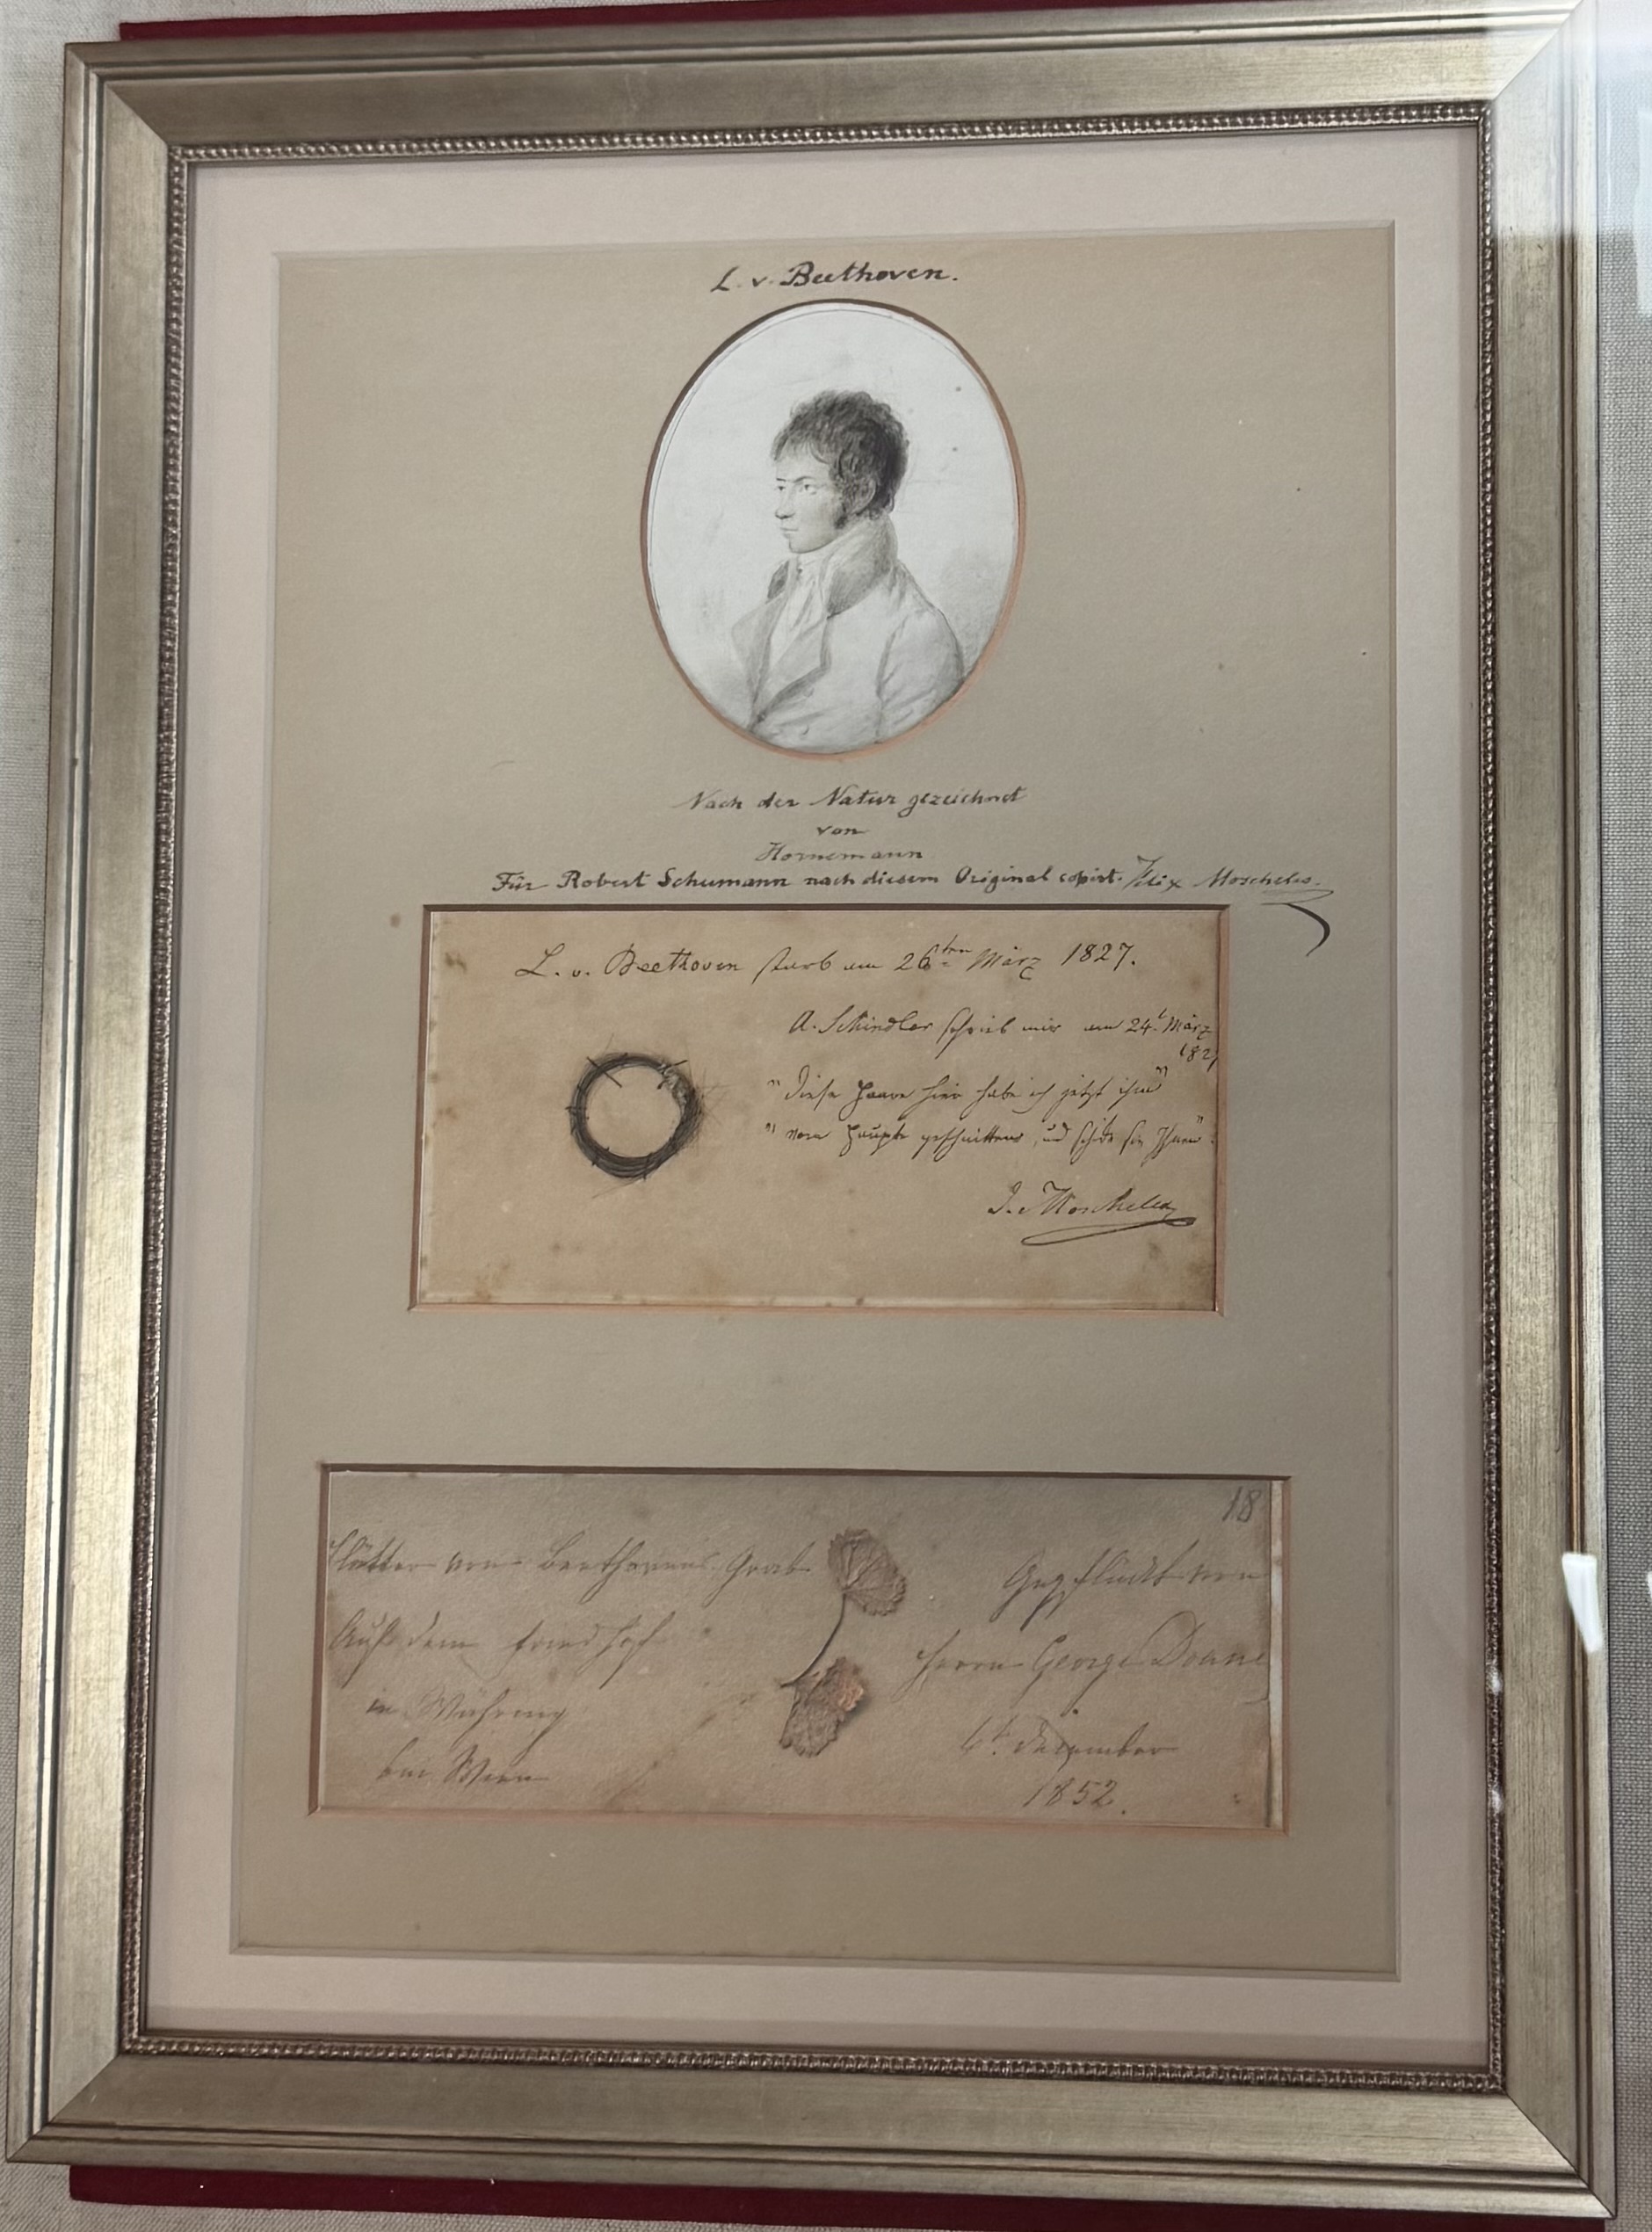 L. v. Beethoven.
Nach der Natur gezeichnet
von
Hornemann
Für Robert Schumann nach diesem Original copirt. Felix Moscheles.
L. v. Beethoven starb am 26ten März 1827.
A. Schindler schrieb mir am 24t. März
182
"Diese Haare hier habe ich jetzt ihm"
"vom Haupte geschnitten, und schicke sie Ihnen".
I. Moscheles
18
Blätter von Beethovens Grab
Auf dem Friedhof
in Währing
bei Wien
Gepflückt von
Herrn George Doane
4t. Dezember
1852.